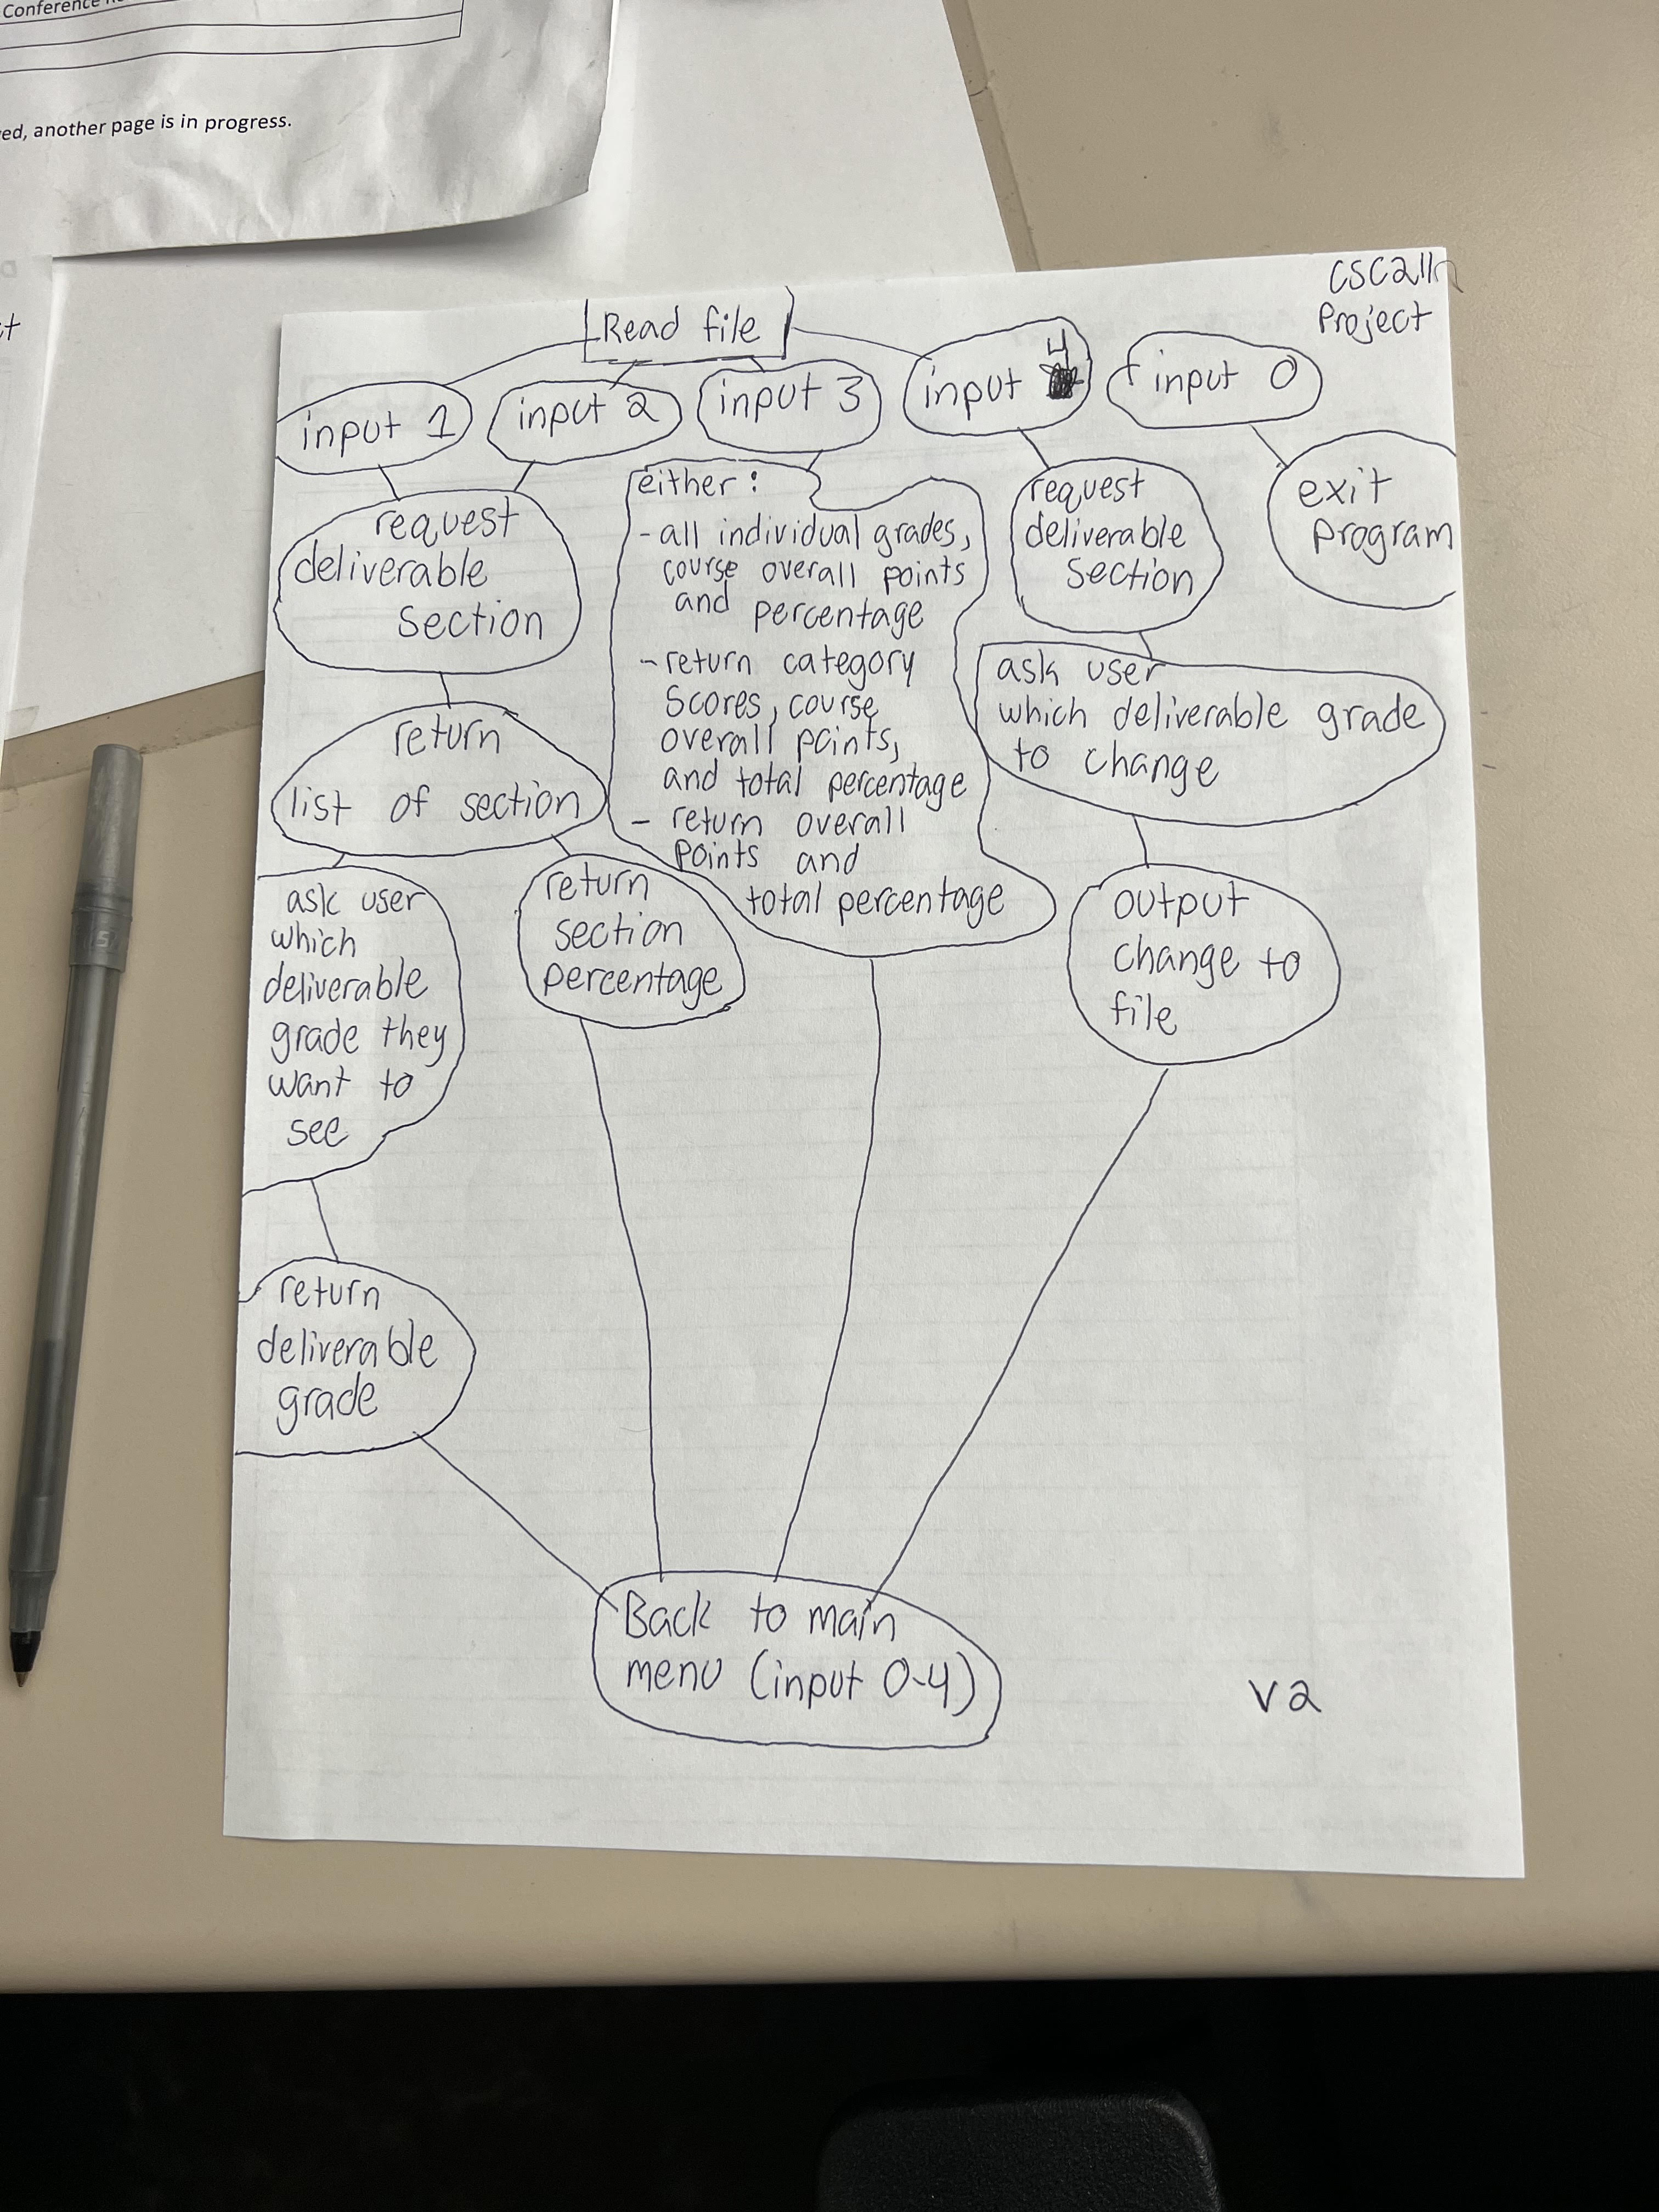 Conference
ed, another page is in progress.
CSC211
Project
Read file
input 1
input 2
input 3
input 4
input 0
request
deliverable
section
either:
-all individual grades,
course overall points
and percentage
-return category
scores, course
overall points,
and total percentage
- return overall
points and
total percentage
request
deliverable
section
exit
program
return
list of section
ask user
which deliverable grade
to change
ask user
which
deliverable
grade they
want to
see
return
section
percentage
output
change to
file
return
deliverable
grade
Back to main
menu (input 0-4)
v2